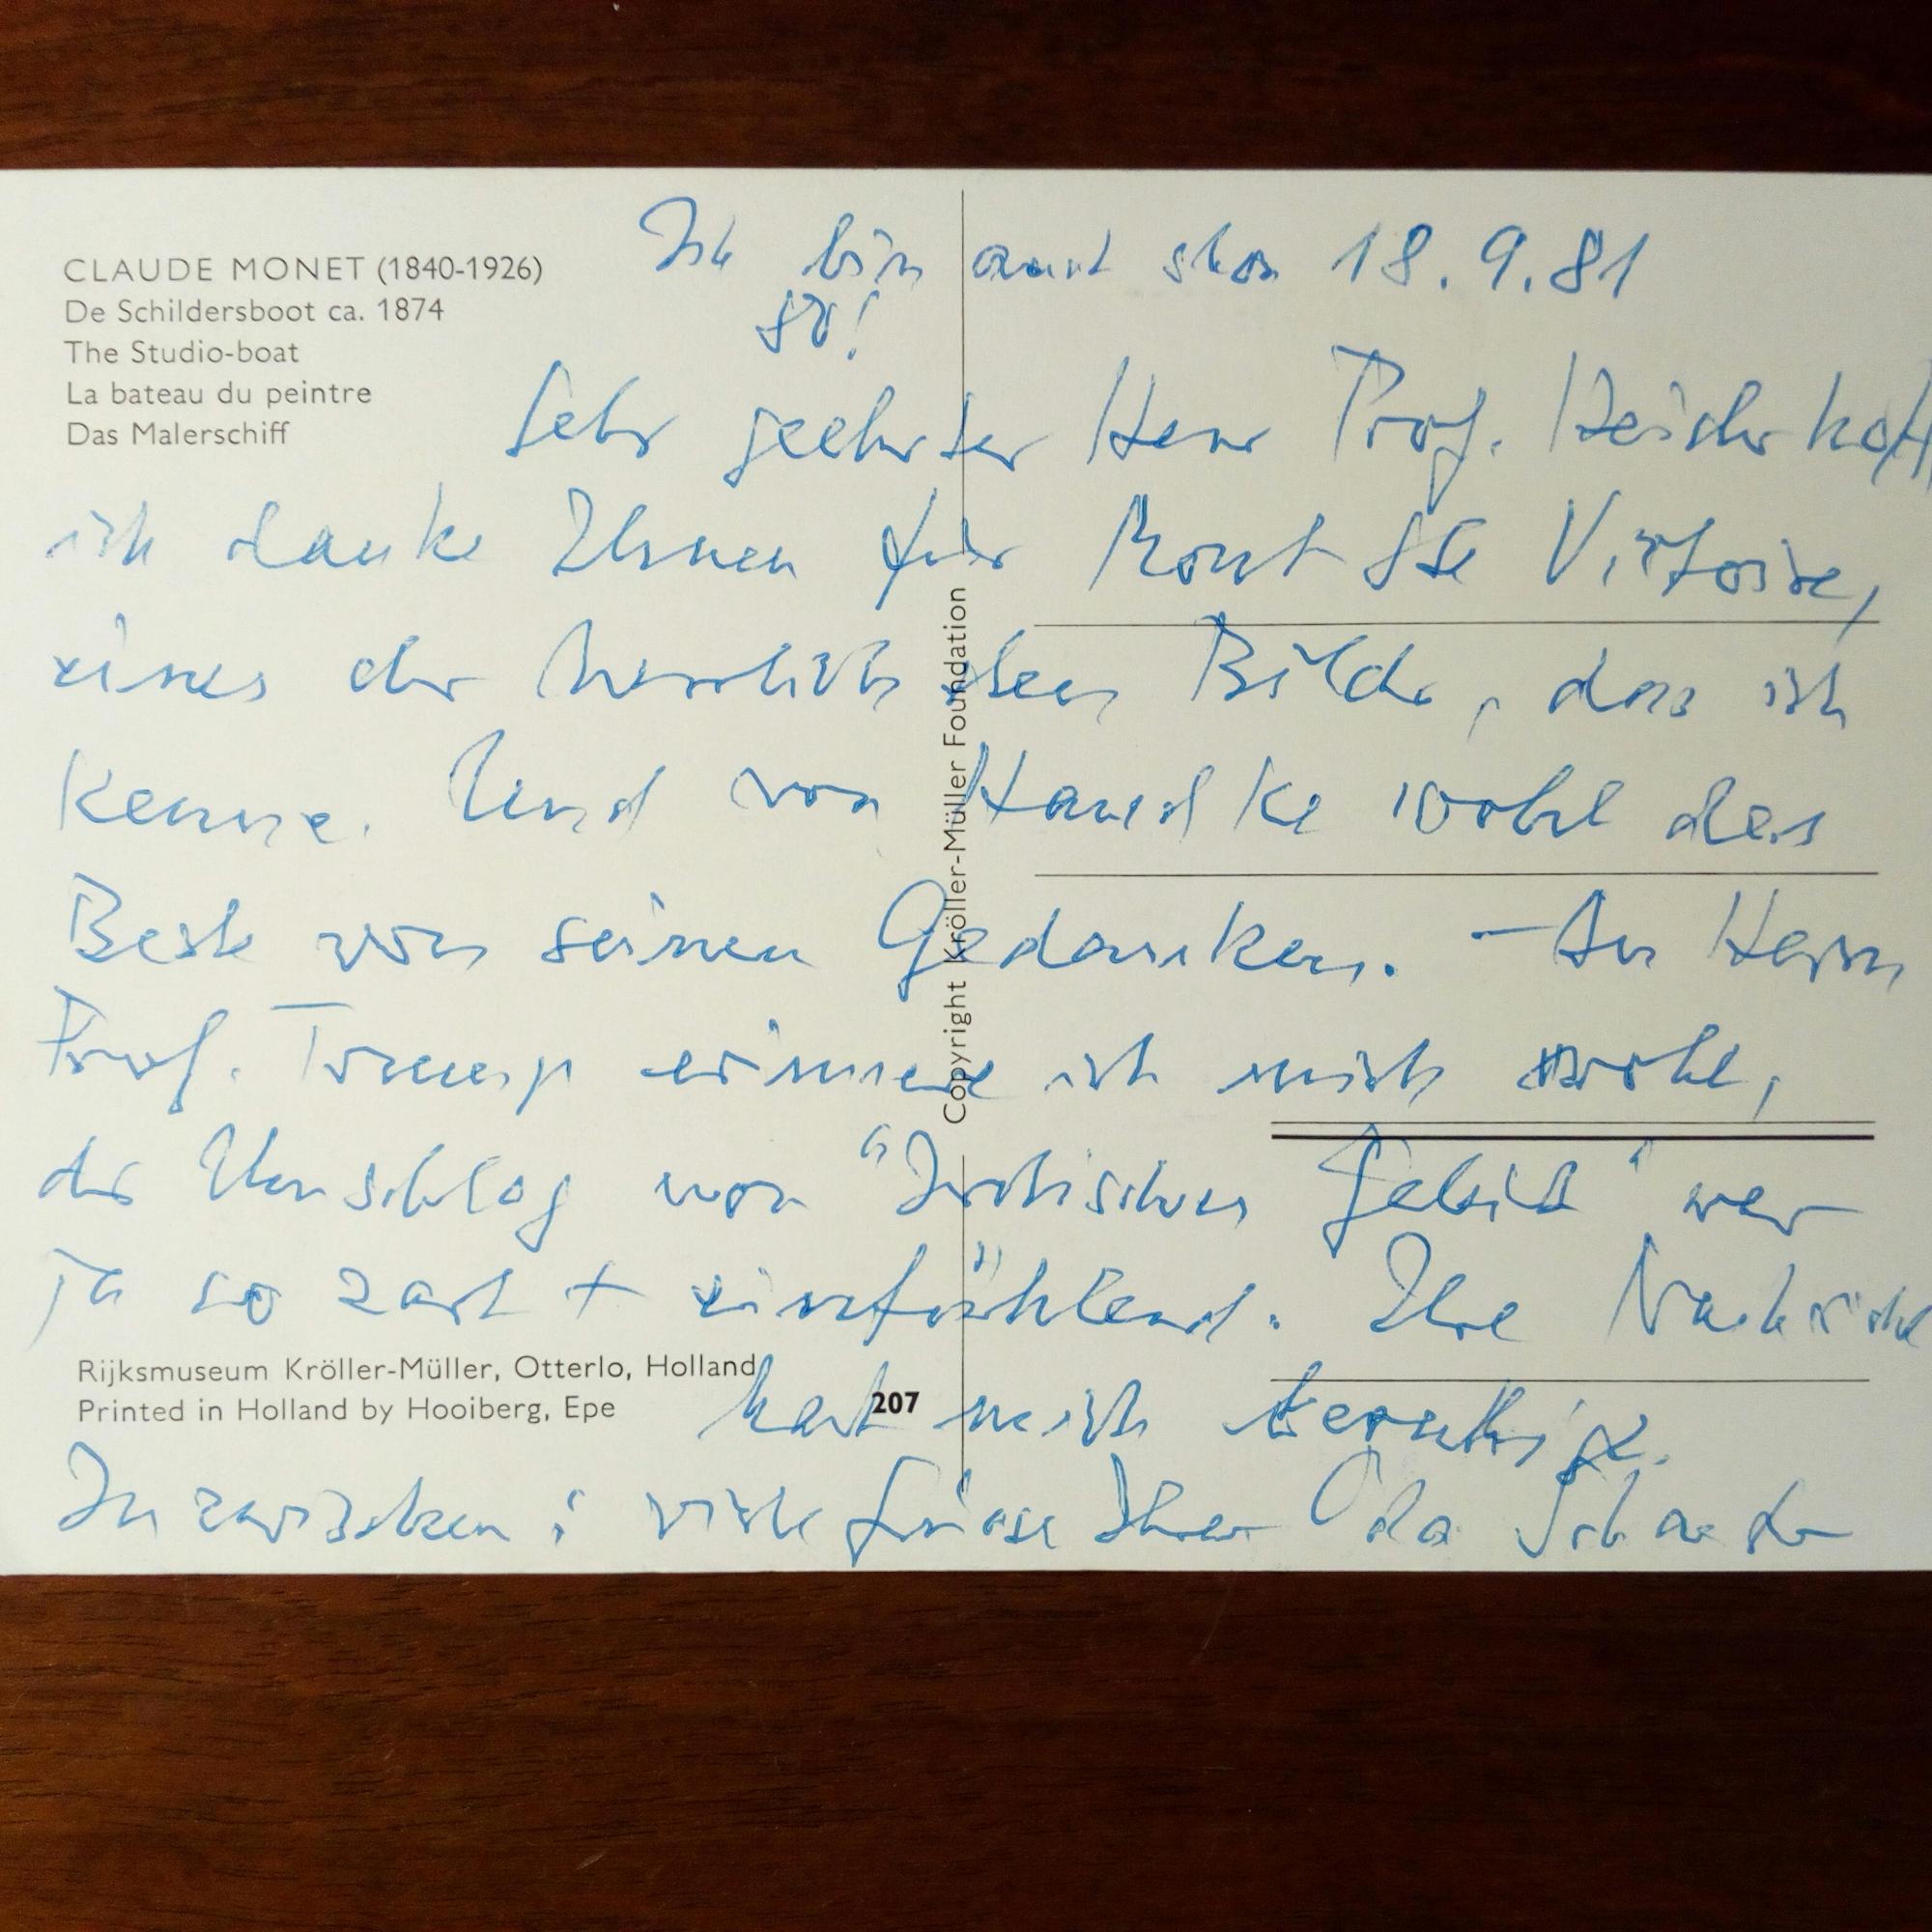 CLAUDE MONET (1840-1926)
De Schildersboot ca. 1874
The Studio-boat
La bateau du peintre
Das Malerschiff
Ich bin auch schon 18.9.81
80!
Sehr geehrter Herr Prof.
ich danke Ihnen für Mont Ste Victoire,
eines der herrlichsten Bilder, das ich
kenne. Und von Handke wohl das
Beste von seinen Gedanken. – An Herrn
Prof. Trump erinnere ich mich wohl,
der Umschlag von "Irdisches Geleit" war
ja so zart + einfühlend. Ihre Nachricht
hat mich beruhigt.
Inzwischen: viele Grüsse Ihrer Oda Schaefer
Rijksmuseum Kröller-Müller, Otterlo, Holland
Printed in Holland by Hooiberg, Epe
207
Copyright Kröller-Müller Foundation